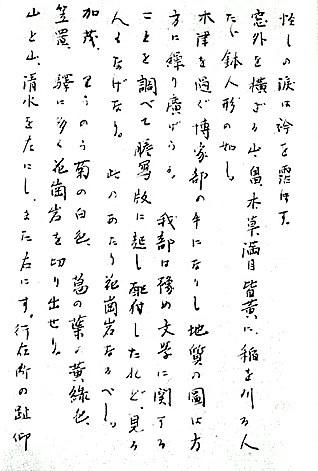 怪しの涙は衿を霑ほす。
窓外を横ぎる山、畠、木草満目皆黄に、稲を刈る人
ただ鉢人形の如し。
木津を過ぐ博家部の手になりし地質の圖は方
方に繰り廣げらる。我部は豫め文学に関する
ことを調べて謄寫版に起し配付したれど、見る
人もなげなり。此のあたり花崗岩なるべし。
加茂、 菊の白色、葛の葉の黄綠色、
笠置 驛に多く花崗岩を切り出せり。
山と山、清水を左にし、また右にす。行在所の趾仰